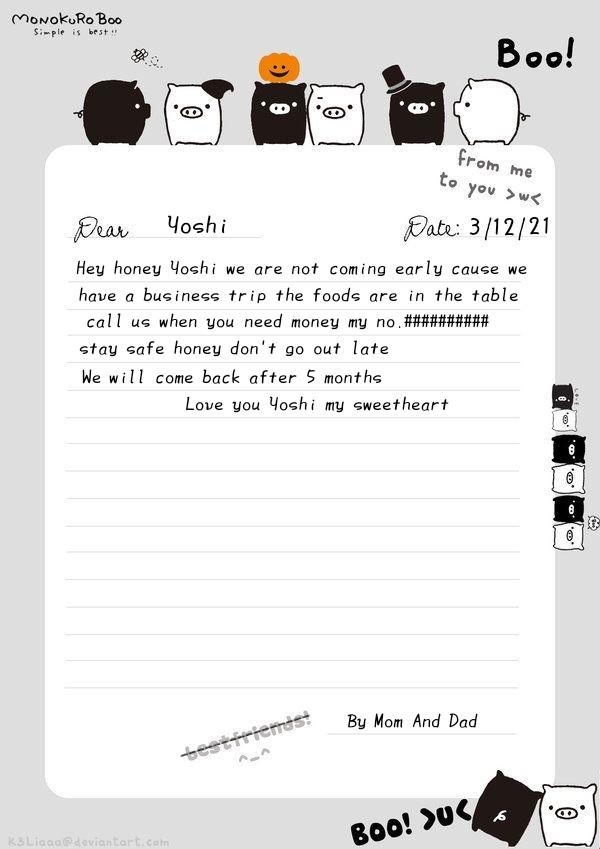 MONOKURO BOO
Simple is best!!
Boo!
from me
to you >w<
Dear Yoshi
Date: 3/12/21
Hey honey Yoshi we are not coming early cause we
have a business trip the foods are in the table
call us when you need money my no.##########
stay safe honey don't go out late
We will come back after 5 months
Love you Yoshi my sweetheart
LOVE
bestfriends!
^_^
By Mom And Dad
Boo! >U<
K3Liaaa@deviantart.com